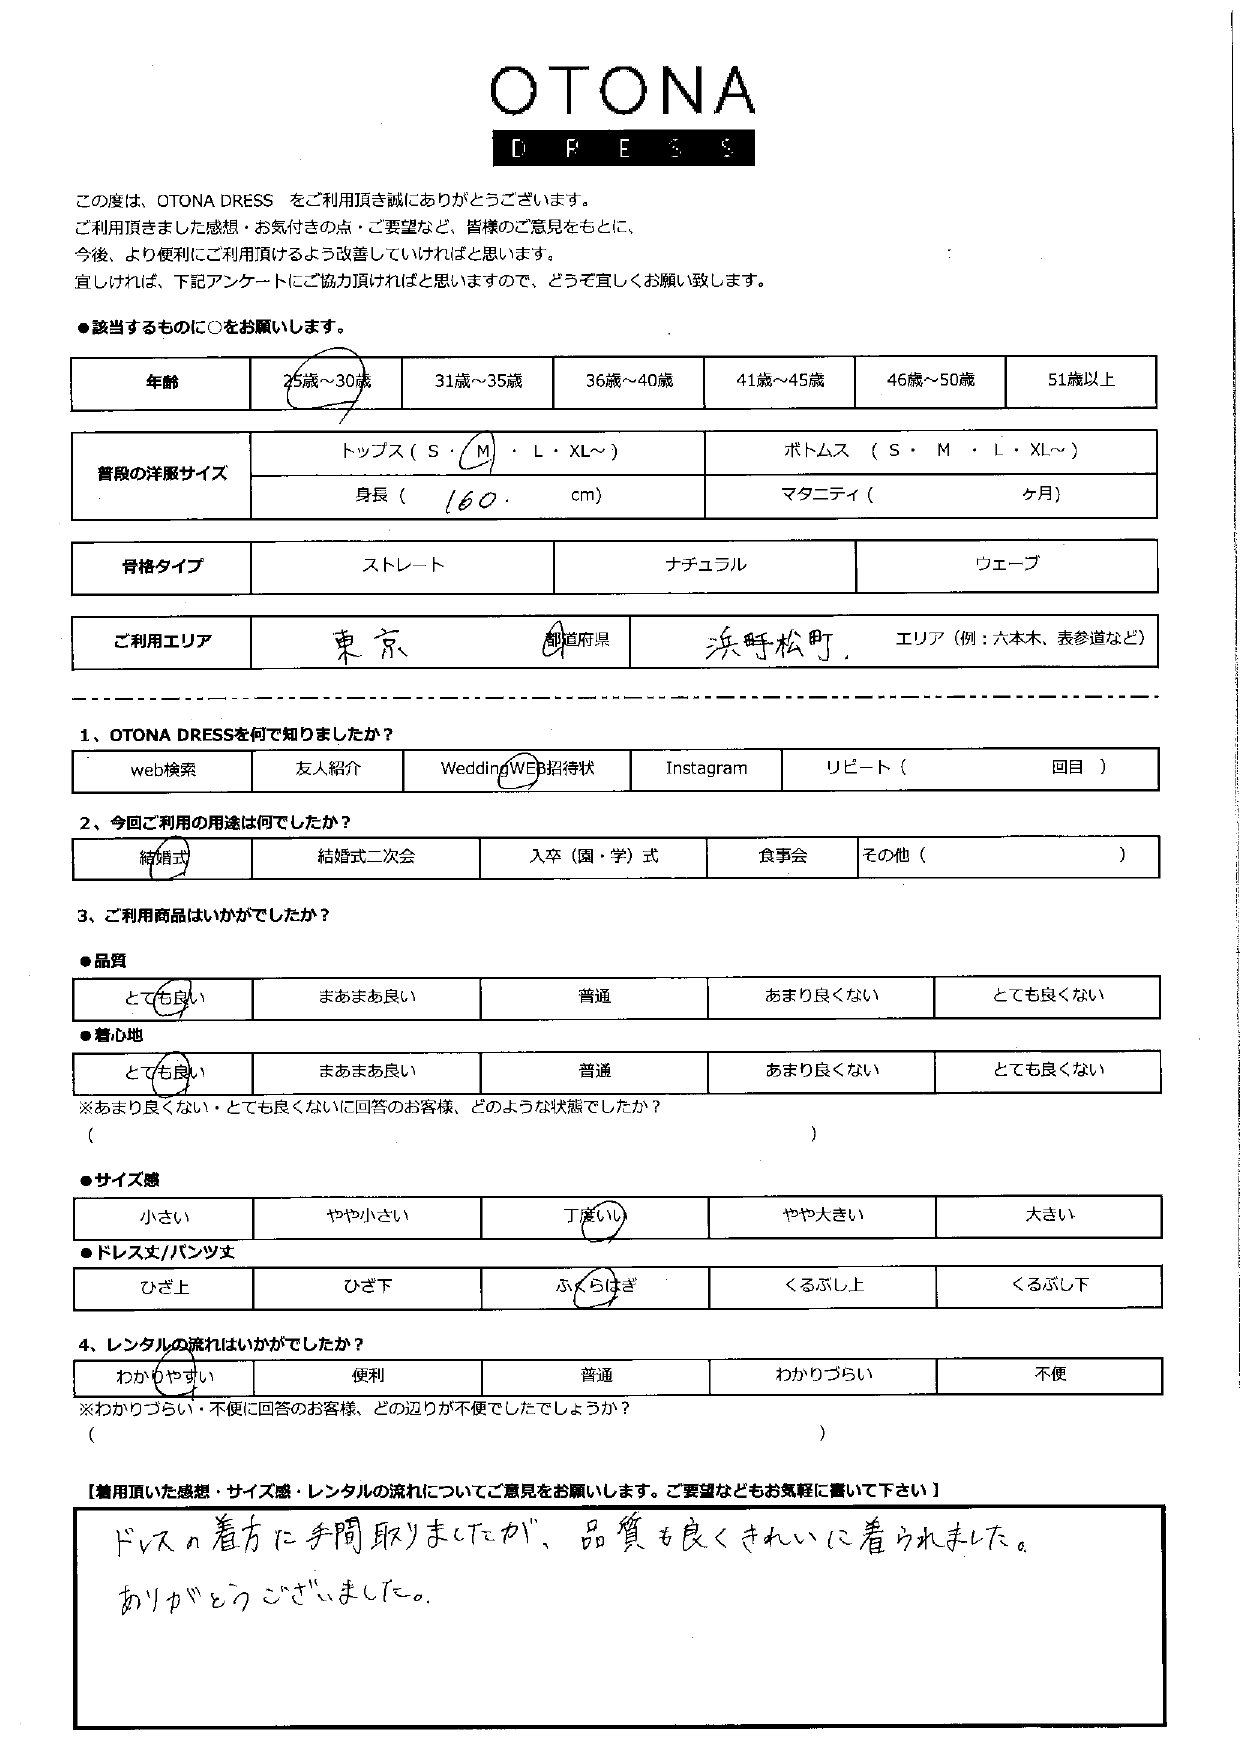 OTONA
DRESS
この度は、OTONA DRESS　をご利用頂き誠にありがとうございます。
ご利用頂きました感想・お気付きの点・ご要望など、皆様のご意見をもとに、
今後、より便利にご利用頂けるよう改善していければと思います。
宜しければ、下記アンケートにご協力頂ければと思いますので、どうぞ宜しくお願い致します。
●該当するものに○をお願いします。
年齢 25歳～30歳 31歳～35歳 36歳～40歳 41歳～45歳 46歳～50歳 51歳以上
普段の洋服サイズ
トップス ( S ・ M ・ L ・ XL～ ) ボトムス ( S ・ M ・ L ・ XL～ )
身長 ( 160. cm) マタニティ ( ケ月)
骨格タイプ ストレート ナチュラル ウェーブ
ご利用エリア 東京 都道府県 浜松町. エリア（例：六本木、表参道など）
1、OTONA DRESSを何で知りましたか？
web検索 友人紹介 WeddingWEB招待状 Instagram リピート ( 回目 )
2、今回ご利用の用途は何でしたか？
結婚式 結婚式二次会 入卒（園・学）式 食事会 その他 ( )
3、ご利用商品はいかがでしたか？
●品質
とても良い まあまあ良い 普通 あまり良くない とても良くない
●着心地
とても良い まあまあ良い 普通 あまり良くない とても良くない
※あまり良くない・とても良くないに回答のお客様、どのような状態でしたか？
( )
●サイズ感
小さい やや小さい 丁度いい やや大きい 大きい
●ドレス丈/パンツ丈
ひざ上 ひざ下 ふくらはぎ くるぶし上 くるぶし下
4、レンタルの流れはいかがでしたか？
わかりやすい 便利 普通 わかりづらい 不便
※わかりづらい・不便に回答のお客様、どの辺りが不便でしたでしょうか？
( )
【着用頂いた感想・サイズ感・レンタルの流れについてご意見をお願いします。ご要望などもお気軽に書いて下さい】
ドレスの着方に手間取りましたが、品質も良くきれいに着られました。
ありがとうございました。